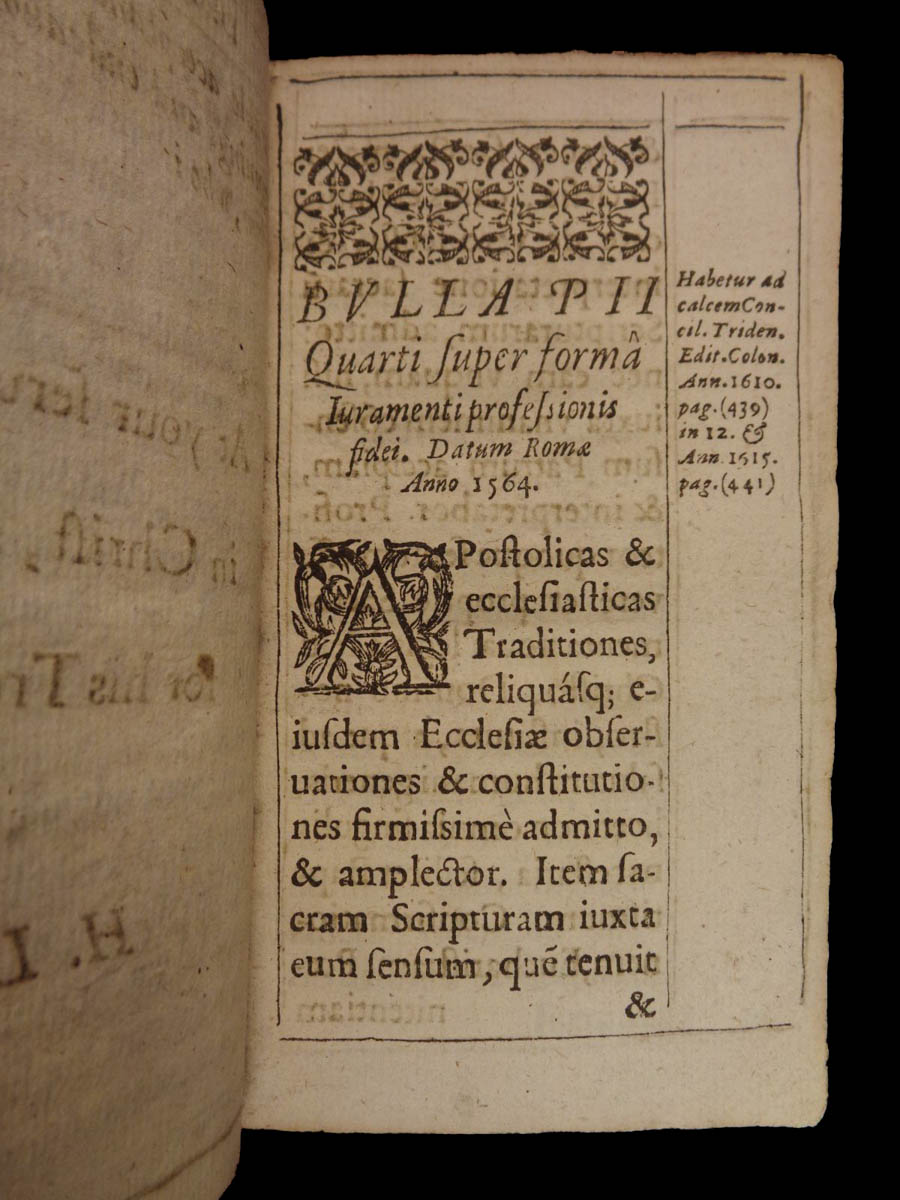 BVLLA PII
Quarti ſuper formâ
Iuramenti profeſsionis
fidei. Datum Romæ
Anno 1564.
APoſtolicas &
eccleſiaſticas
Traditiones,
reliquáſq; e-
iuſdem Eccleſiæ obſer-
uationes & conſtitutio-
nes firmiſsimè admitto,
& amplector. Item ſa-
cram Scripturam iuxta
eum ſenſum, quē tenuit
&
Habetur ad
calcem Con-
cil. Triden.
Edit. Colon.
Ann. 1610.
pag. (439)
in 12. &
Ann. 1615.
pag. (441)